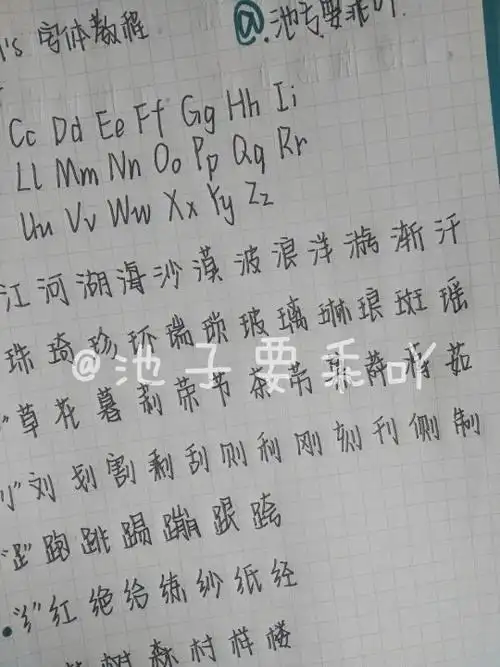 's 字体教程 @.池子要乖吖.
Cc Dd Ee Ff Gg Hh Ii
Ll Mm Nn Oo Pp Qq Rr
Uu Vv Ww Xx Yy Zz
江 河 湖 海 沙 漠 波 浪 洋 漓 渐 汗
珠 琦 珍 环 瑞 琐 玻 璃 琳 琅 斑 瑶
@池子要乖吖
" 草 花 暮 莉 荣 节 茶 茀 菜 萨 茹
刂" 刘 划 割 剩 刮 则 利 刚 刻 刊 侧 制
"𧾷" 跑 跳 踢 蹦 跟 跨
"纟" 红 绝 给 练 纱 纸 经
树 森 村 样 楼